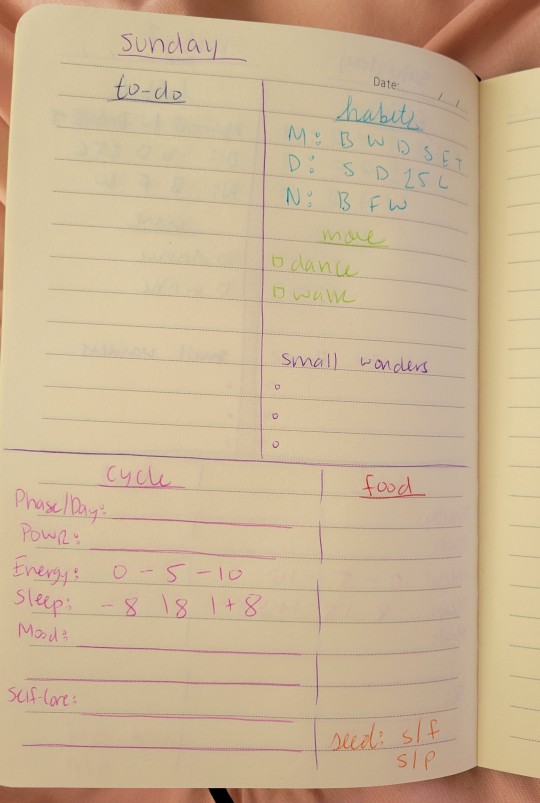 sunday
Date: / /
to-do
habits
M: B W D S E T
D: S D 25 L
N: B F W
move
dance
walk
small wonders
cycle
Phase/Day:
Power:
Energy: 0 - 5 - 10
Sleep: - 8 | 8 | + 8
Mood:
Self-Care:
food
seed: s/f
s/p